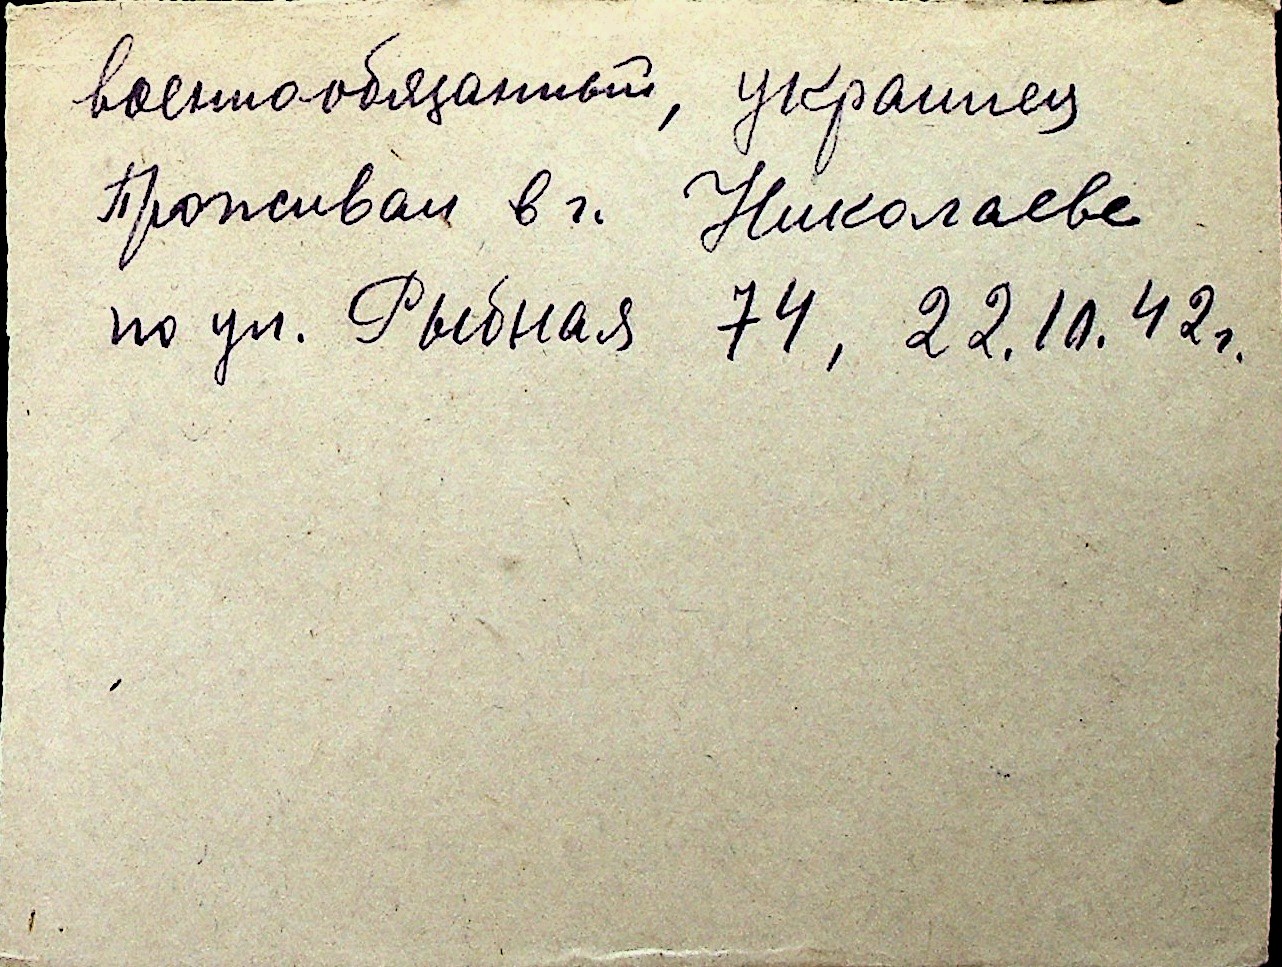 военнообязанный, украинец
Проживал в г. Николаеве
по ул. Рыбная 74, 22.10.42г.